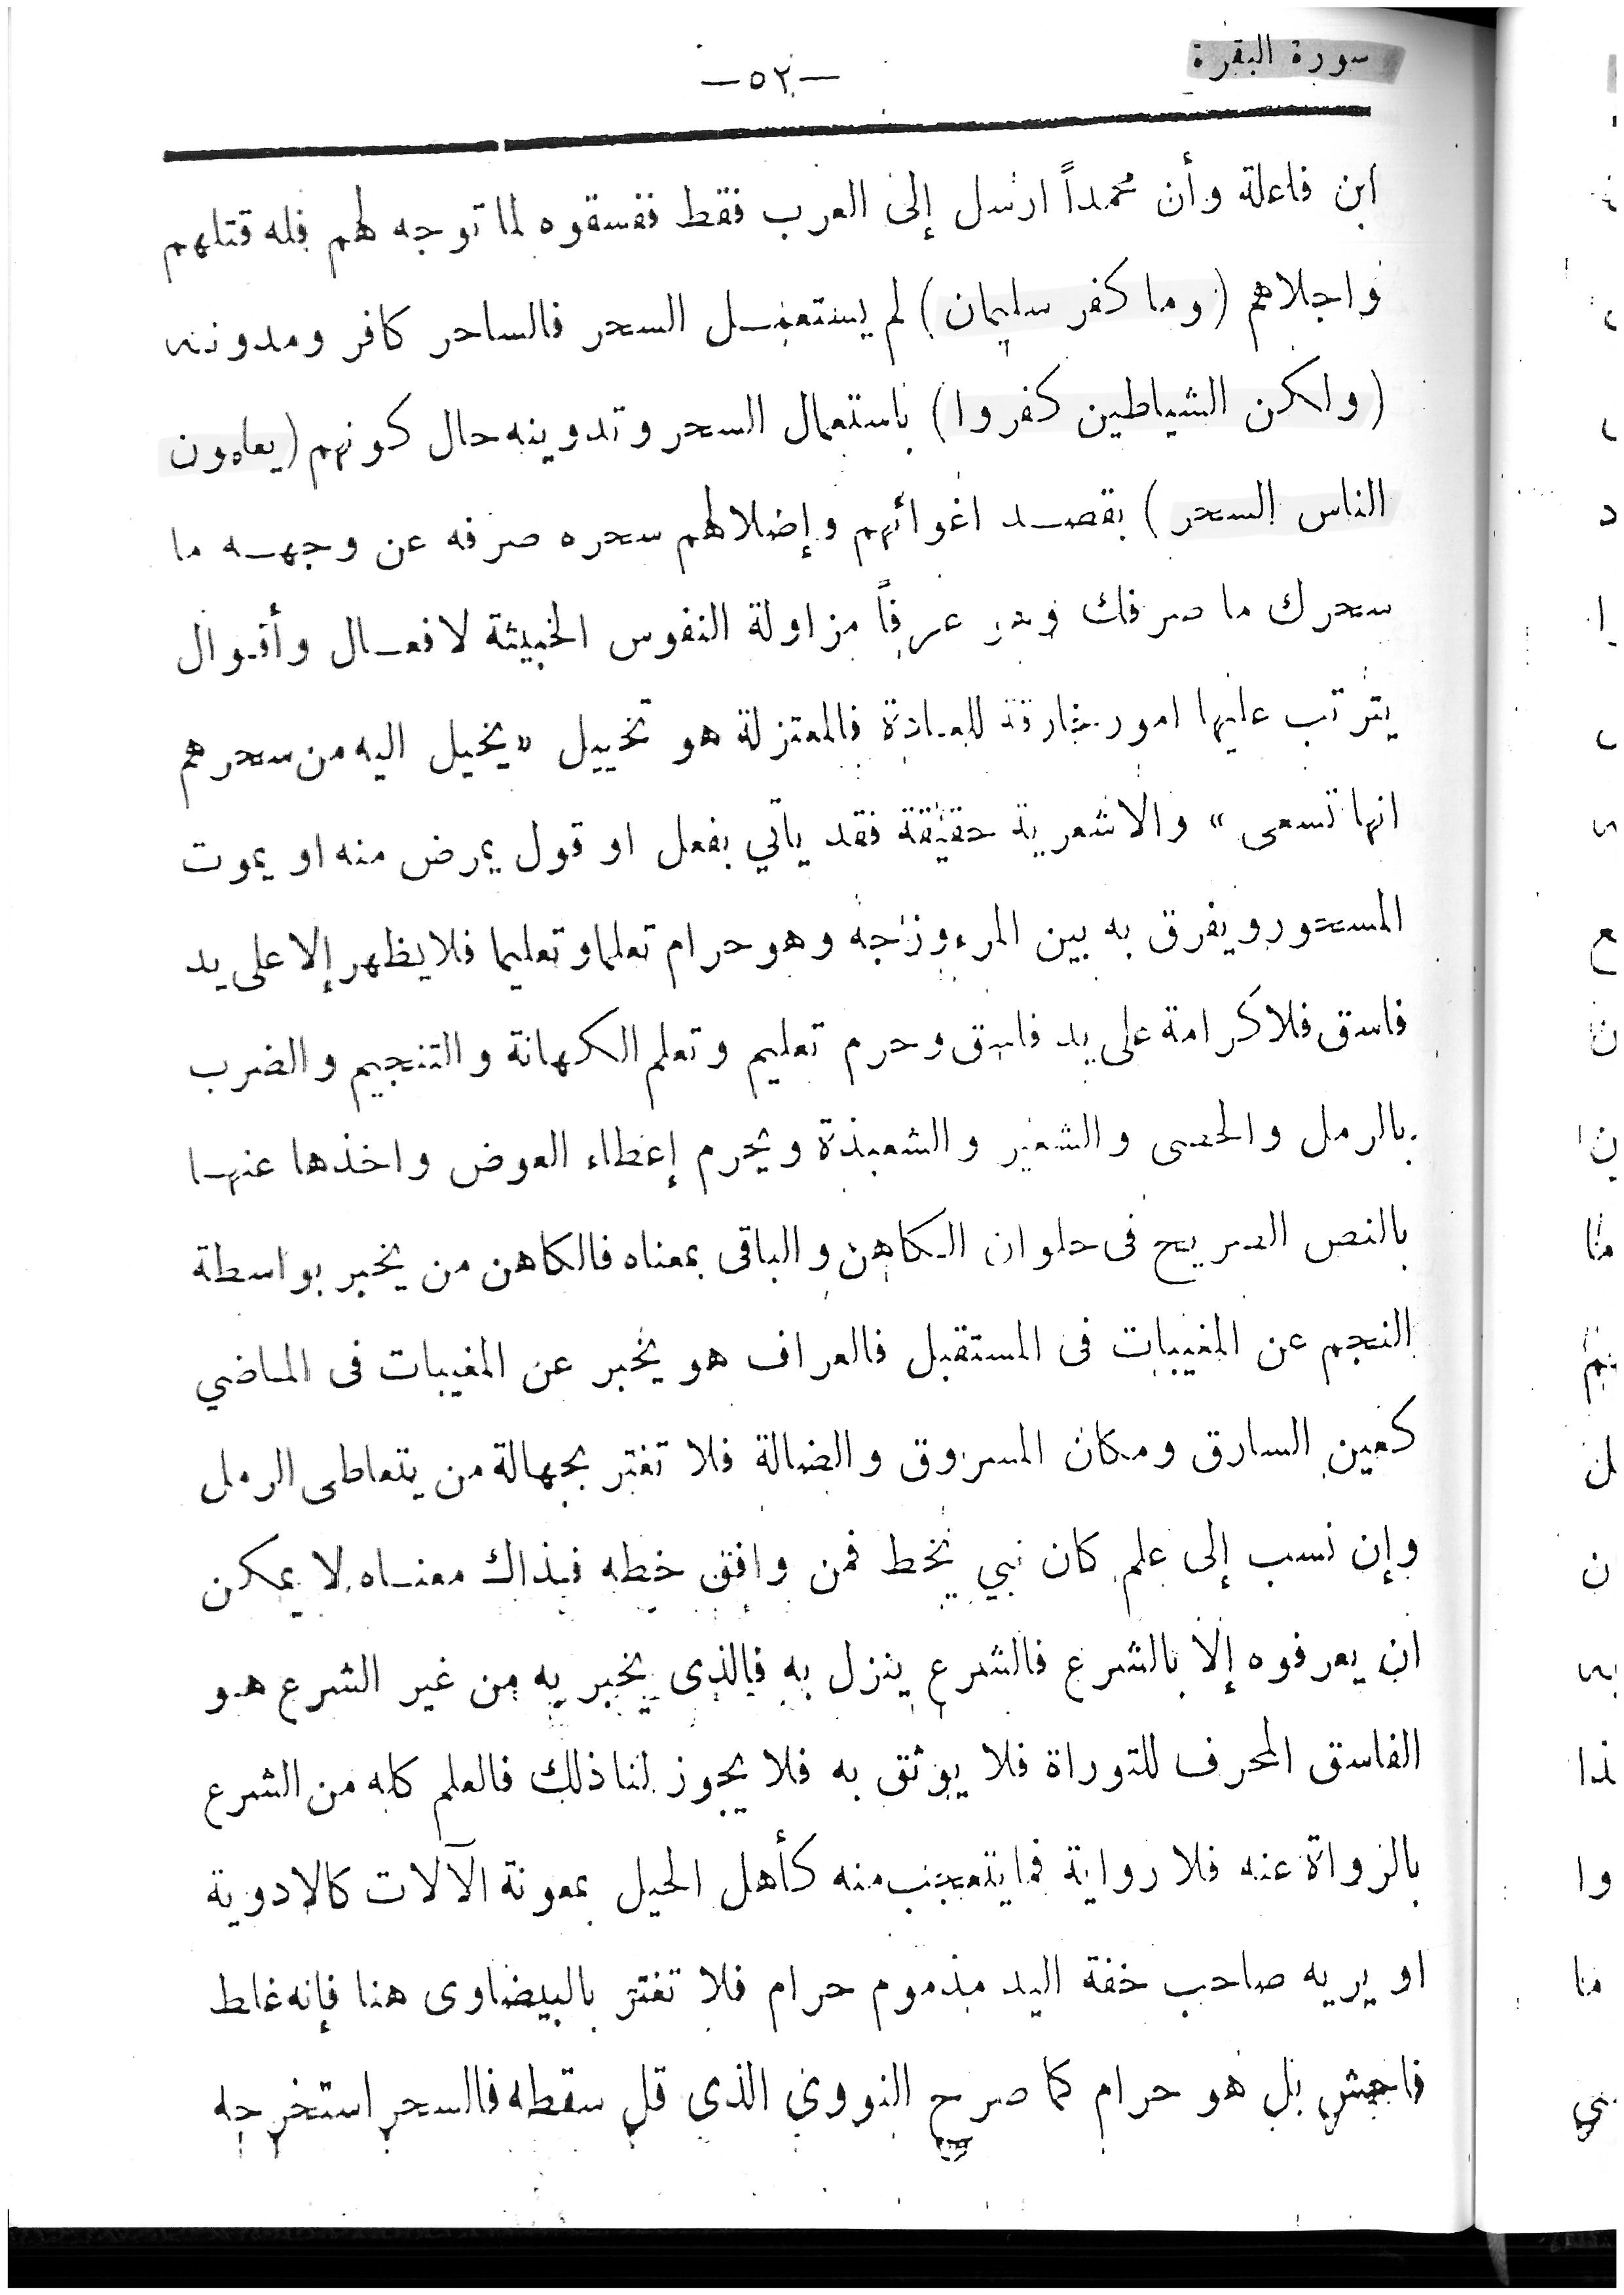 سورة البقرة
—٥٢—
ابن فاعلة وأن محمداً ارسل إلى العرب فقط ففسقوه لما توجه لهم فله قتلهم
واجلاهم (وما كفر سليمان) لم يستعمل السحر فالساحر كافر ومدونه
(ولكن الشياطين كفروا) باستعمال السحر وتدوينه حال كونهم (يعلمون
الناس السحر) بقصد اغوائهم وإضلالهم سحره صرفه عن وجهه ما
سحرك ما صرفك وهو عرفاً مزاولة النفوس الخبيثة لافعال وأقوال
يترتب عليها امور خارقة للعادة فالمعتزلة هو تخييل «يخيل اليه من سحرهم
انها تسعى» والاشعرية حقيقة فقد يأتي بفعل او قول يمرض منه او يموت
المسحور ويفرق به بين المرء وزجه وهو حرام تعلما وتعليما فلا يظهر إلا على يد
فاسق فلا كرامة على يد فاسق وحرم تعليم وتعلم الكهانة والتنجيم والضرب
بالرمل والحصى والشعير والشعبذة ويحرم إعطاء العوض واخذها عنها
بالنص الصريح فى حلوان الكاهن والباقى بمعناه فالكاهن من يخبر بواسطة
النجم عن المغيبات فى المستقبل فالعراف هو يخبر عن المغيبات فى الماضي
كعين السارق ومكان المسروق والضالة فلا تغتر بجهالة من يتعاطى الرمل
وإن نسب إلى علم كان نبي يخط فمن وافق خطه فبذاك معناه لا يمكن
ان يعرفوه إلا بالشرع فالشرع ينزل به فالذى يخبر به من غير الشرع هو
الفاسق المحرف للتوراة فلا يوثق به فلا يجوز لنا ذلك فالعلم كله من الشرع
بالرواة عنه فلا رواية فما يتعجب منه كأهل الحيل بمعونة الآلات كالادوية
او يريه صاحب خفة اليد مذموم حرام فلا تغتر بالبيضاوى هنا فإنه غلط
فاحش بل هو حرام كما صرح النووي الذى قل سقطه فالسحر استخرجه